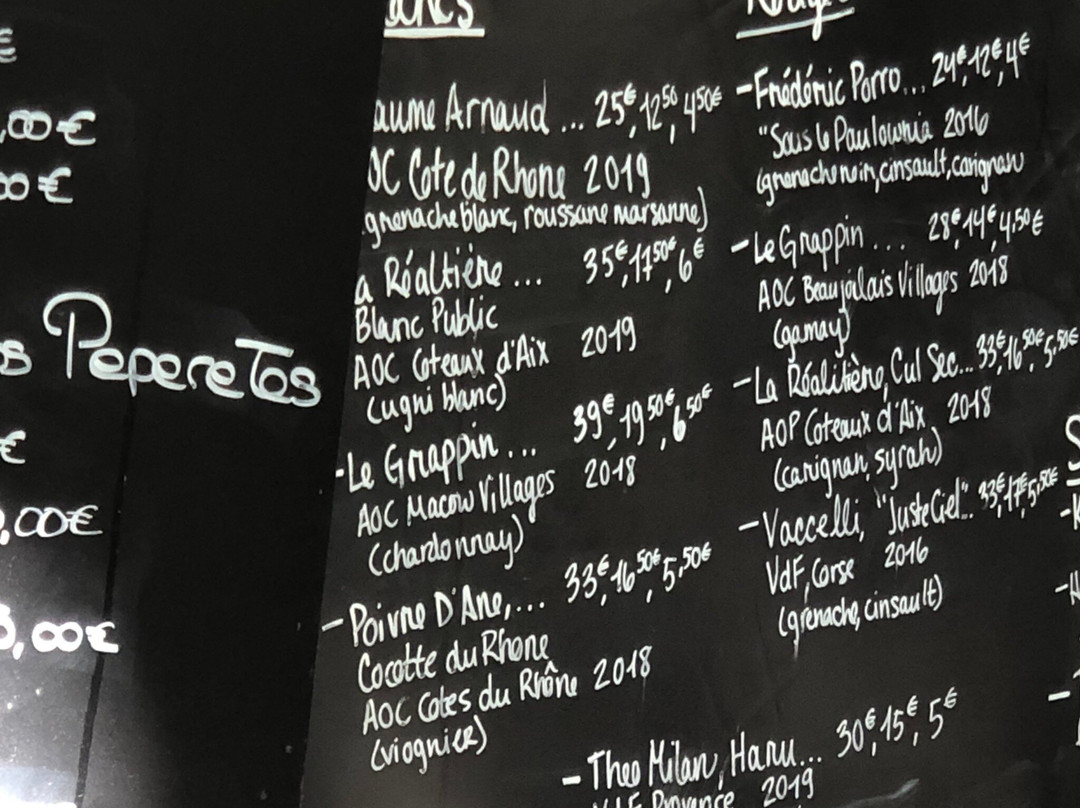 €
,00€
00€
s PepereTos
€
0,00€
0,00€
ancs
aume Arnaud ... 25€, 12,50, 4,50€
OC Cote de Rhone 2019
grenache blanc, roussane marsanne)
a Réaltière ... 35€, 17,50€, 6€
Blanc Public
AOC Coteaux d'Aix 2019
(ugni blanc)
-Le Grappin ... 39€, 19,50€, 6,50€
AOC Macow Villages 2018
(chardonnay)
- Poivre D'Ane, ... 33€, 16,50€, 5,50€
Cocotte du Rhone
AOC Cotes du Rhône 2018
(viognier)
Rouges
-Frédéric Porro... 24€, 12€, 4€
"Sous le Paulownia 2016
(grenache noir, cinsault, carignan
-Le Grappin ... 28€, 14€, 4,50€
AOC Beaujolais Villages 2018
(gamay)
-La Réalitière, Cul Sec... 33€, 16,50€, 5,50€
AOP Coteaux d'Aix 2018
(carignan, syrah)
-Vaccelli, "Juste Ciel".. 33€, 17€, 5,50€
VdF, Corse 2016
(grenache, cinsault)
- Theo Milan, Haru... 30€, 15€, 5€
VdF Provence 2019